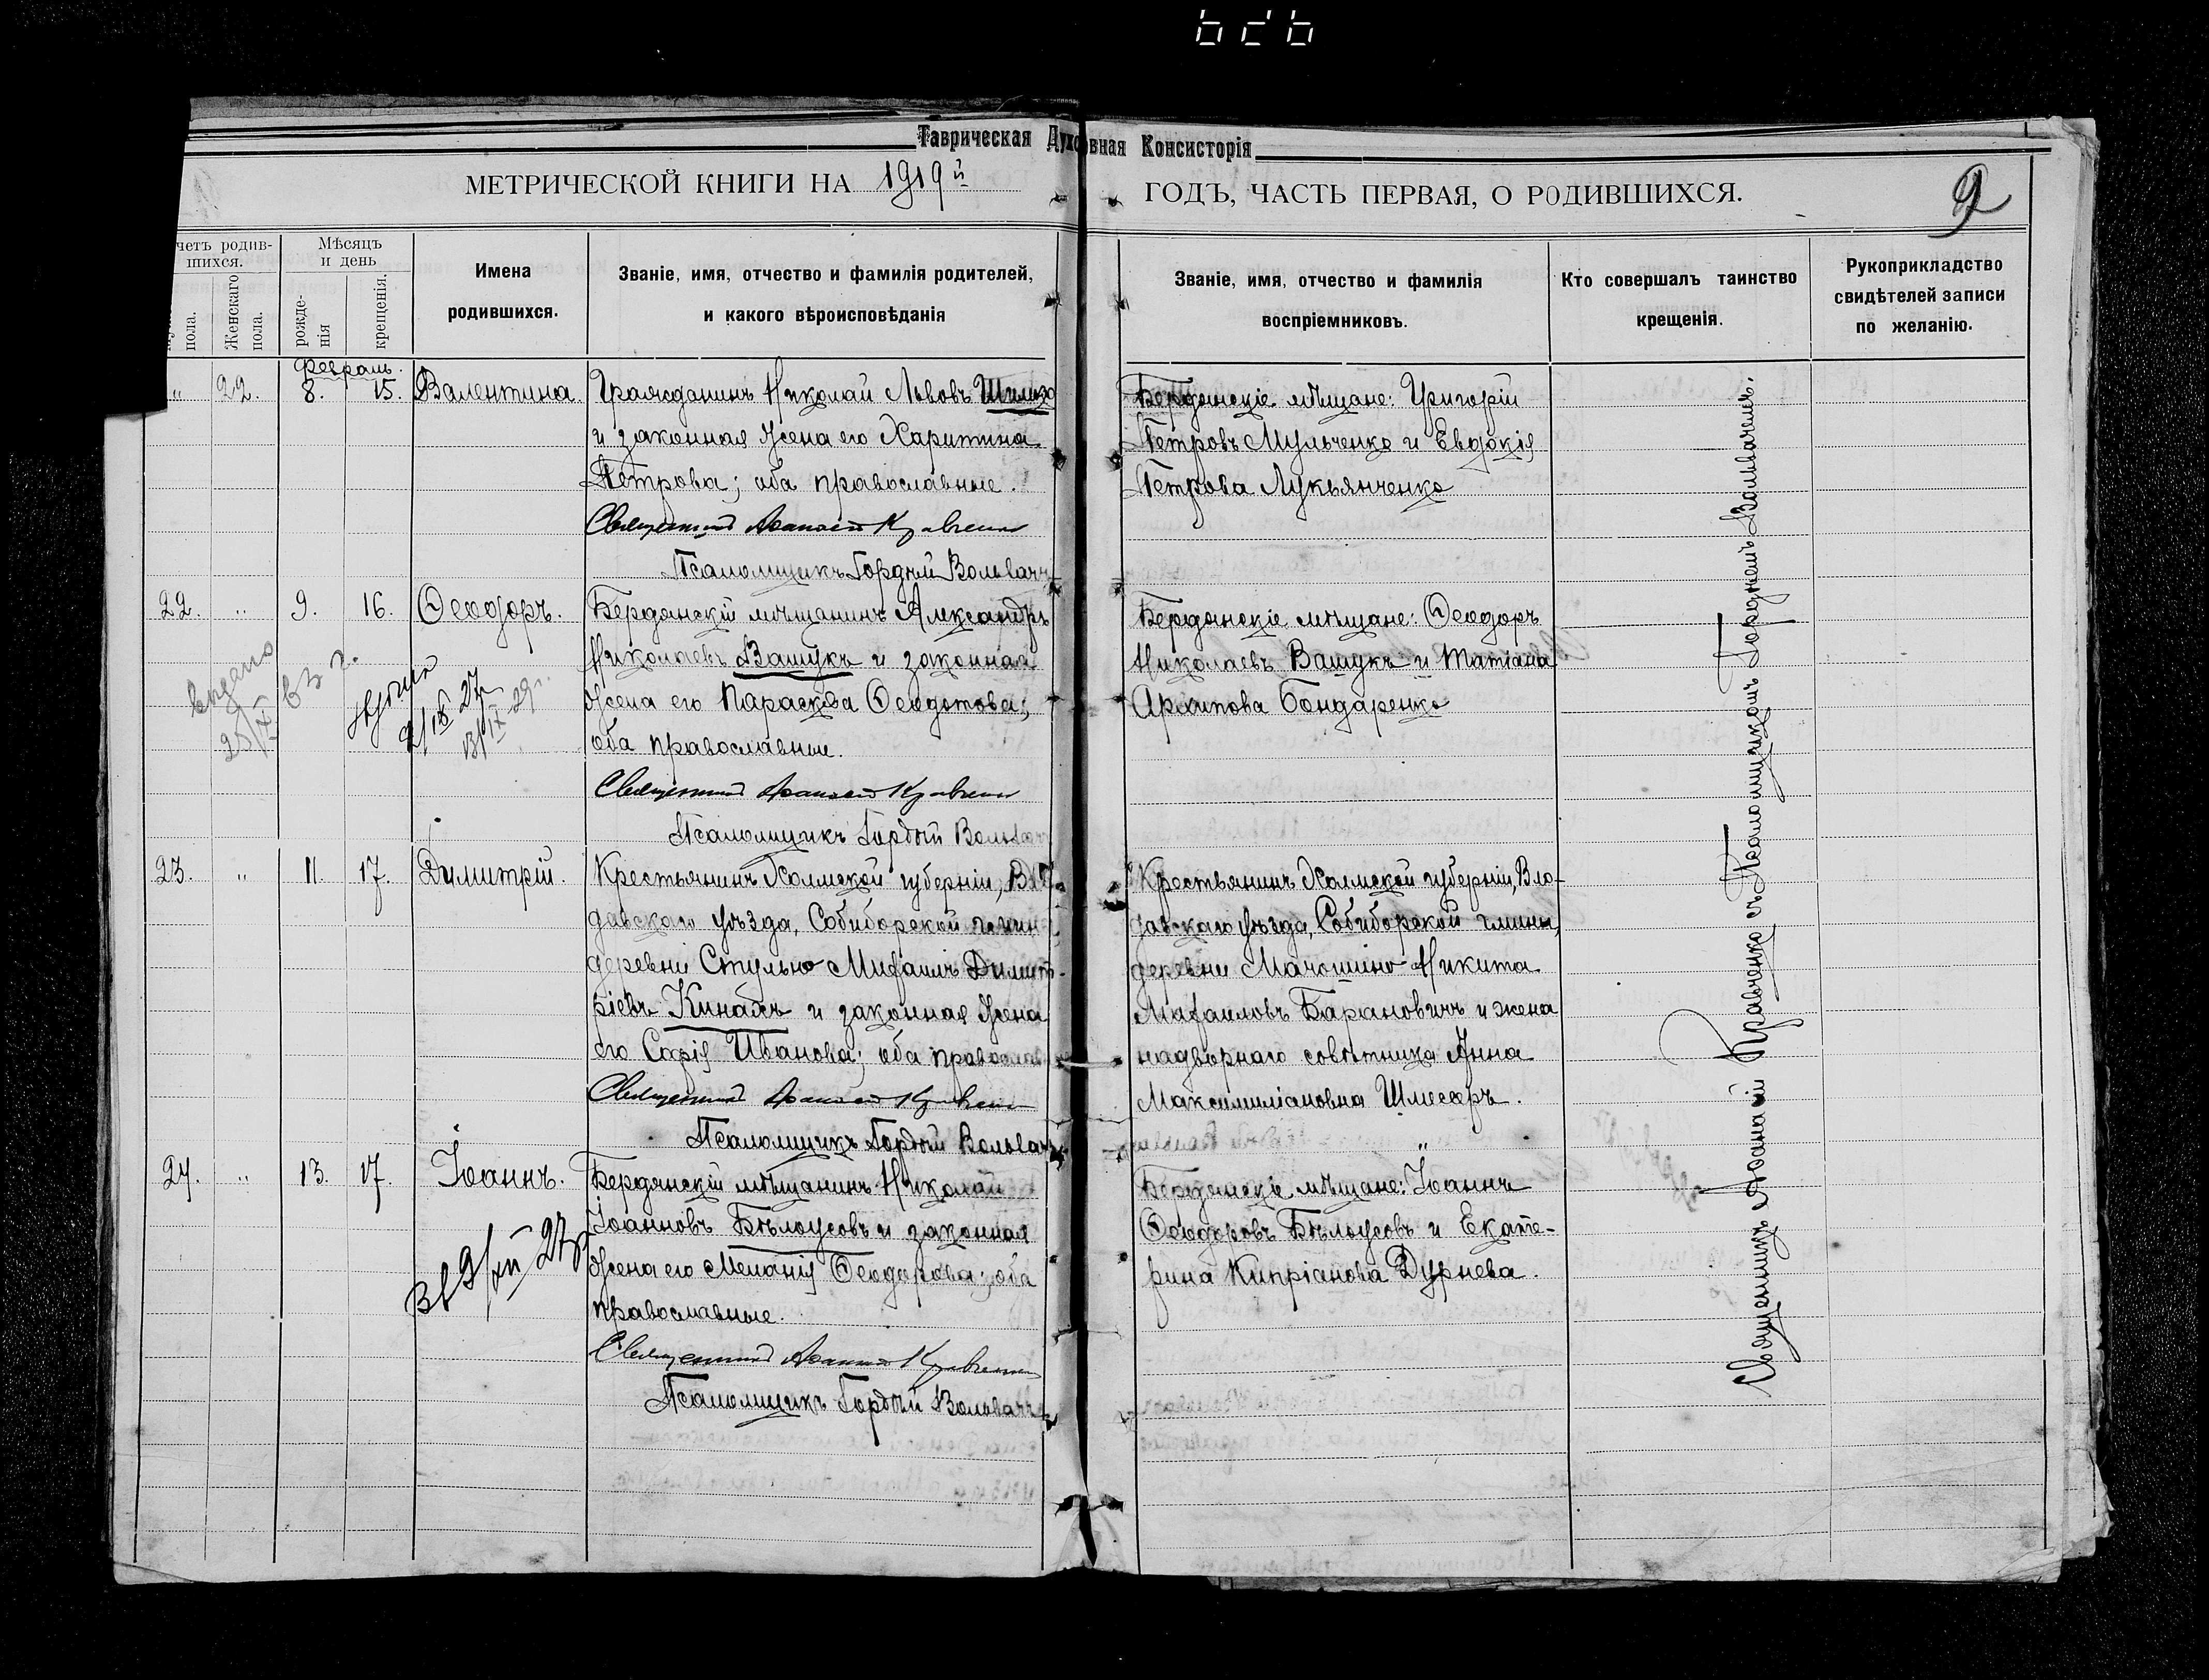 Таврическая Духовная Консисторія
МЕТРИЧЕСКОЙ КНИГИ НА 1919й
ГОДЪ, ЧАСТЬ ПЕРВАЯ, О РОДИВШИХСЯ.
9
четъ родив-
шихся.
пола.
Женскаго
пола.
Мѣсяцъ
и день
рожде-
нія
крещенія.
Имена
родившихся.
Званіе, имя, отчество и фамилія родителей,
и какого вѣроисповѣданія
Званіе, имя, отчество и фамилія
воспріемниковъ.
Кто совершалъ таинство
крещенія.
Рукоприкладство
свидѣтелей записи
по желанію.
Февраль.
" 22. 8. 15. Валентина.
Гражданинъ Николай Львовъ
и законная жена его Харитина
Петрова; оба православные.
Священникъ Аѳанасій Кравченко
Псаломщикъ Гордѣй Вольвач
Бердянскіе мѣщане: Григорій
Петровъ Мульченко и Евдокія
Петрова Лукьянченко
22. " 9. 16. Ѳеодоръ.
Бердянскій мѣщанинъ Александръ
Николаевъ Ващукъ и законная
жена его Параскева Ѳеодотова;
оба православные.
Священникъ Аѳанасій Кравченко
Псаломщикъ Гордѣй Вольвач
Бердянскіе мѣщане: Ѳеодоръ
Николаевъ Ващукъ и Татіана
Архипова Бондаренко
27
13/IX 29г.
23. " 11. 17. Димитрій.
Крестьянинъ Холмской губерніи, Вло-
давскаго уѣзда, Собиборской гмин
деревни Стульно Михаилъ Димит-
ріевъ Кинахъ и законная жена
его Софія Иванова; оба православ
Священникъ Аѳанасій Кравченко
Псаломщикъ Гордѣй Вольвач
Крестьянинъ Холмской губерніи, Вло-
давскаго уѣзда, Собиборской гмины,
деревни Мачошино Никита
Михаиловъ Барановичъ и жена
надворнаго совѣтника Анна
Максимиліановна Шлесеръ.
24. " 13. 17. Іоаннъ.
Бердянскій мѣщанинъ Николай
Іоанновъ Бѣлоусовъ и законная
жена его Меланія Ѳеодорова; оба
православные.
Священникъ Аѳанасій Кравченко
Псаломщикъ Гордѣй Вольвачъ
Бердянскіе мѣщане: Іоаннъ
Ѳеодоровъ Бѣлоусовъ и Екате-
рина Кипріанова Дурнева.
9/XII 27г
Священникъ Аѳанасій Кравченко съ Псаломщикомъ Гордѣемъ Вольвачемъ.